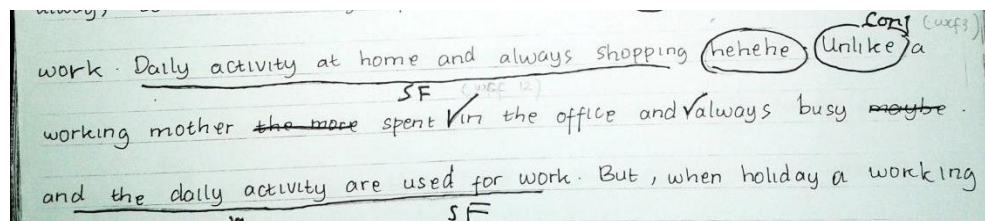 always,
Conj (wcf3)
work. Daily activity at home and always shopping hehehe Unlike a
SF (wcf 12)
working mother the more spent in the office and always busy maybe.
and the daily activity are used for work. But, when holiday a working
SF